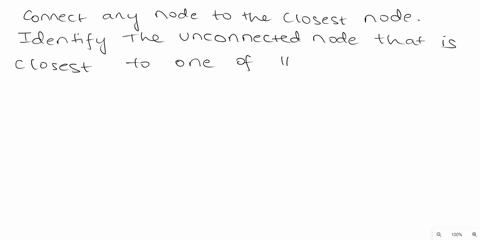 Connect any node to the closest node.
Identify The unconnected node that is
closest to one of
100%